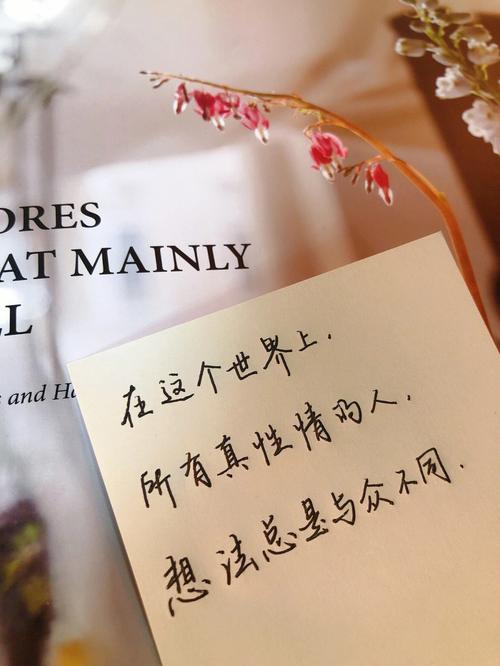 ORES
AT MAINLY
LL
and
在这个世界上.
所有真性情的人.
想法总是与众不同.